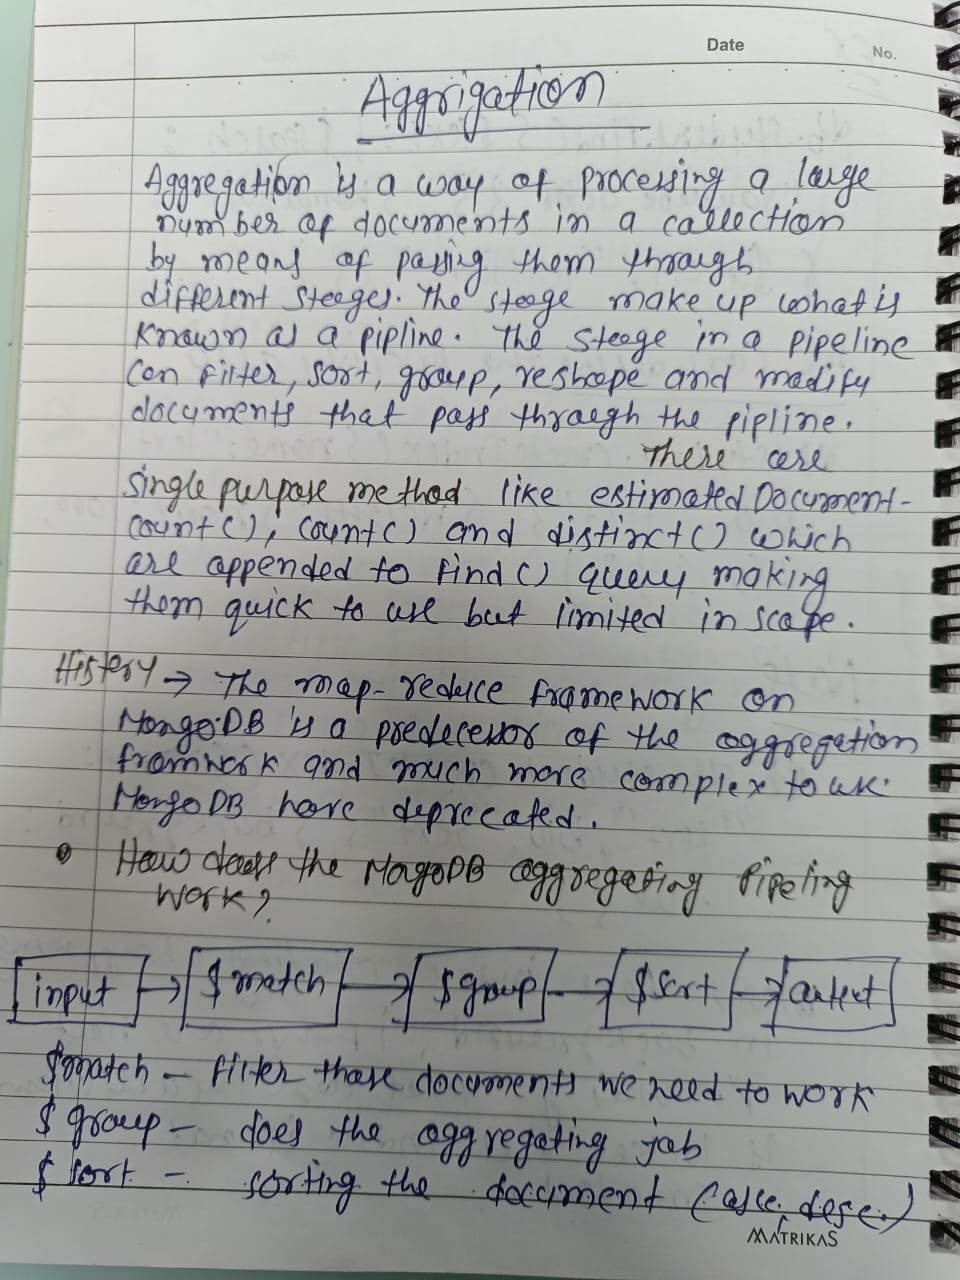 Date
No.
Aggrigation
Aggregation is a way of processing a large
number of documents in a collection
by means of passing them through
different steeges. The steege make up what is
known as a pipline. The steege in a pipeline
can filter, sort, group, reshape and modify
documents that pass through the pipline.
There are
single purpose method like estimatedDocument-
count(), count() and distinct() which
are appended to find() query making
them quick to use but limited in scope.
History → The map-reduce framework on
MongoDB is a predecessor of the aggregation
framwork and much more complex to use.
MongoDB have deprecated.
How does the MagoDB aggregating Pipeling
work?
input → $match → $group → $sort → output
$match – filter those documents we need to work
$ group – does the aggregating job
$ sort – sorting the document (asce. desc.)
MATRIKAS